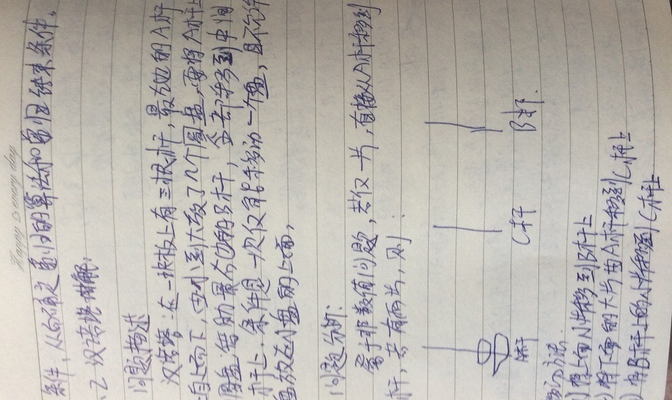 Happy every day
条件,从而确定递归的算法和递归结束条件。
、2 汉诺塔讲解
问题描述
汉诺塔:在一块板上有三根杆,最左边的A杆
自上而下,由小到大放了几个圆盘,再将A杆上
圆盘借助最右边的B杆,全部移到中间
杆上,条件是一次仅能移动一个盘,且不允许
盘放在小盘的上面。
问题分析:
属于非数值问题,若仅一片,直接从A杆移到
杆,若有两片,则:
A杆 C杆 B杆
方法:
将上面小片移到B杆上
将下面的大片由A杆移到C杆上
将B杆上的小片移到C杆上